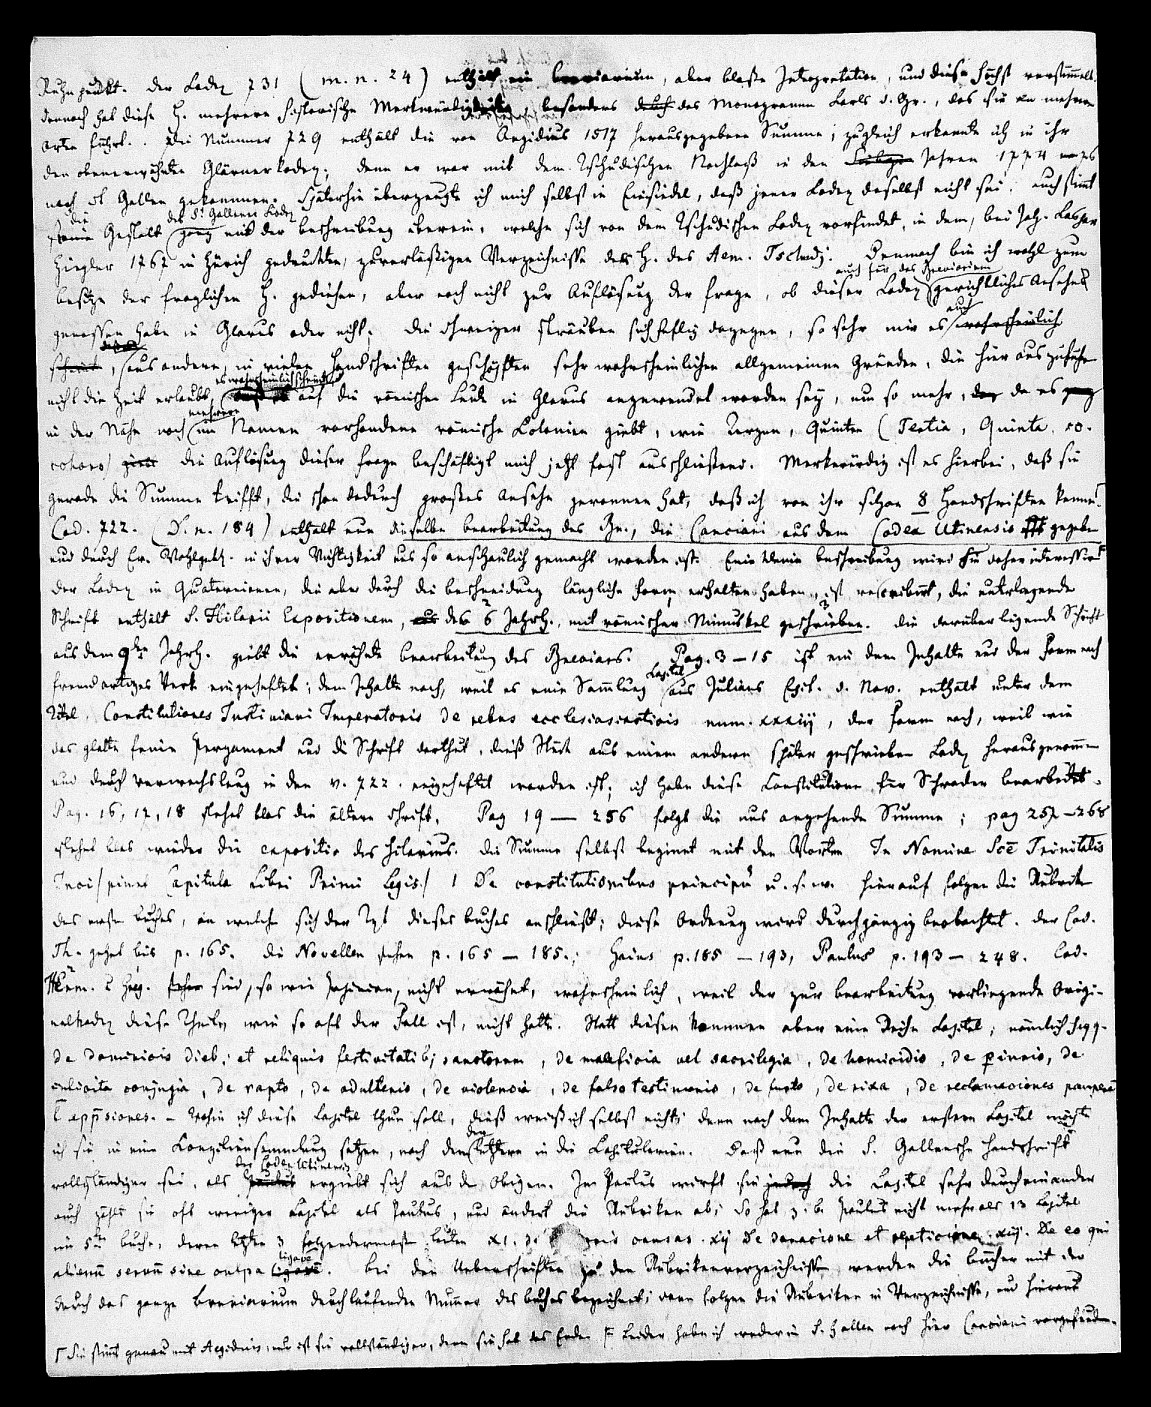 Ruhepunkt. Der Codex 731 (m. n. 24) enthält ein breviarium, aber bloße Interpretation, und diese höchst verstümmelt.
dennoch hat diese H. mehrere historische Merkwürdigkeiten, besonders durch das Monogramm Carls d. Gr., das sie an mehrern
Orten führt. Die Nummer 729 enthält die von Aegidius 1517 herausgegebene Summe; zugleich erkannte ich in ihr
den obenerwähnten Glarnerkodex; denn er war mit dem Tschudischen Nachlaß in den Jahren 1774
nach St Gallen gekommen. Späterhin überzeugte ich mich selbst in Einsiedel, daß jener Codex daselbst nicht sei; auch stimt
die Gestalt des St Gallener Codex ganz mit der beschreibung überein, welche sich von dem Tschudischen Codex vorfindet, in dem, bei Joh. Caspar
Ziegler 1767 in Zürich gedruckten, zuverlässigen Verzeichnisse der H. des Aem. Tschudj. Demnach bin ich wohl zum
besitze der fraglichen H. gediehen, aber noch nicht zur Auflösung der frage, ob dieser Codex auch für das Breviarium gerichtliches Ansehen
genossen habe in Glarus oder nicht. Die sträuben sich heftig dagegen, so sehr mir es auch
aus andern, in vielen Handschriften geschöpften sehr wahrscheinlichen allgemeinen Gründen, die hier auszuführen
nicht die Zeit erlaubt, es wahrscheinlich scheint auf die römischen Leute in Glarus angewendet worden sey, um so mehr, da es
in der Nähe noch mehrere im Namen vorhandene römische Colonien giebt, wie Terzen, Quinten (Tertia, Quinta. co.
cohors) Die Auflösung dieser frage beschäftigt mich jetzt fast ausschließend. Merkwürdig ist es hierbei, daß sie
gerade die Summe trifft, die schon dadurch großes Ansehn gewonnen hat, daß ich von ihr schon 8 Handschriften kenne.
Cod. 722. (D. n. 184) enthält nun dieselbe bearbeitung des Br., die Canciani aus dem Codex Utinensis gegeben
und durch Ew. Wohlgeb. in ihrer Wichtigkeit uns so anschaulich gemacht worden ist. Eine kleine beschreibung wird Sie daher interessiren
Der Codex in Quaternionen, die aber durch die beschneidung längliche form erhalten haben, ist rescribirt, die unterliegende
Schrift enthält S. Hilarii Expositionem, des 6 Jahrh., mit römischer Minuskel geschrieben. die darüber liegende Schicht
aus dem 9ten Jahrh. giebt die erwähnte bearbeitung des Breviars. Pag. 3 — 15 ist ein dem Inhalte und der Form nach
fremdartiges Werk eingeheftet; dem Inhalte nach, weil es eine Sammlung Capitel aus Julians Epit. d. Nov. enthält unter dem
Titel. Constitutiones Justiniani Imperatoris de rebus ecclesiasiasticis num. xxxiij, der form nach, weil wie
das glatte feine Pergament und die Schrift darthut, dieß Stück aus einem andern später geschriebnen Codex herausgenommen
und durch verwechslung in den n. 722. eingeheftet worden ist; ich habe diese Constitutionen für Schrader bearbeitet.
Pag. 16, 17, 18 stehet blos die ältere schrift. Pag 19 — 256 folgt die uns angehende Summe; pag 257 — 268
stehet blos wieder die expositio des Hilarius. Die Summe selbst beginnt mit den Worten In Nomine Scē Trinitatis
Incipiunt Capitula Libri Primi Legis. 1 De constitutionibus principū u. s. w. hierauf folgen die Rubriken
des ersten buches, an welche sich der Text dieses buches anschließt; diese Ordnung wird durchgängig beobachtet. Der Cod.
Th. gehet bis p. 165. die Novellen gehen p. 165 — 185.; Gaius p. 185 — 193, Paulus p. 193 — 248. Cod.
Herm. & Greg. sind, so wie Papinian, nicht erwähnt, wahrscheinlich, weil der zur bearbeitung vorliegende Origi-
nalkodex diese Theile, wie so oft der Fall ist, nicht hatte. Statt dessen kommen aber eine Reihe Capitel, nämlich
de dominicis dieb; et reliquis festivitatib; sanctorum, de maleficia vel sacrilegia, de homicidio, de de
inlicita conjugia, de rapto, de adulterio, de violencia, de falso testimonio, de furto, de rixa, de reclamaciones pauperū
l appsiones. — Wohin ich diese Capitel thun soll, dieß weiß ich selbst nicht; denn nach dem Inhalte der ersten Capitel möchte
ich sie in eine Conziliensammlung setzen, nach den letztern in die Capitularien. Daß nun die S. Gallensche Handschrift
vollständiger sei, als der Codex Utinensis ergiebt sich aus dem Obigen. Im Paulus wirft sie jedoch die Capitel sehr durcheinander
auch zählt sie oft weniger Capitel als Paulus, und ändert die Rubriken ab; So hat z. b. Paulus nicht mehr als 13 Capitel
im 5ten buche, deren letzte 3 folgendermaßen lauten XI. de causas. xij De donacione et xiij. De eo qui
alienū servū sine culpa ligavē. Bei den Ueberschriften zu den Rubrikenverzeichnissen werden die bücher mit der
durch das ganze breviarium durchlaufenden Nummer des buches bezeichnet; dann folgen die Rubriken im Verzeichnisse, und hierauf
Γ Sie stimt genau mit Aegidius, nur ist sie vollständiger, denn sie hat das Ende. F Leider habe ich weder in S. Gallen noch hier Canciani vorgefunden.